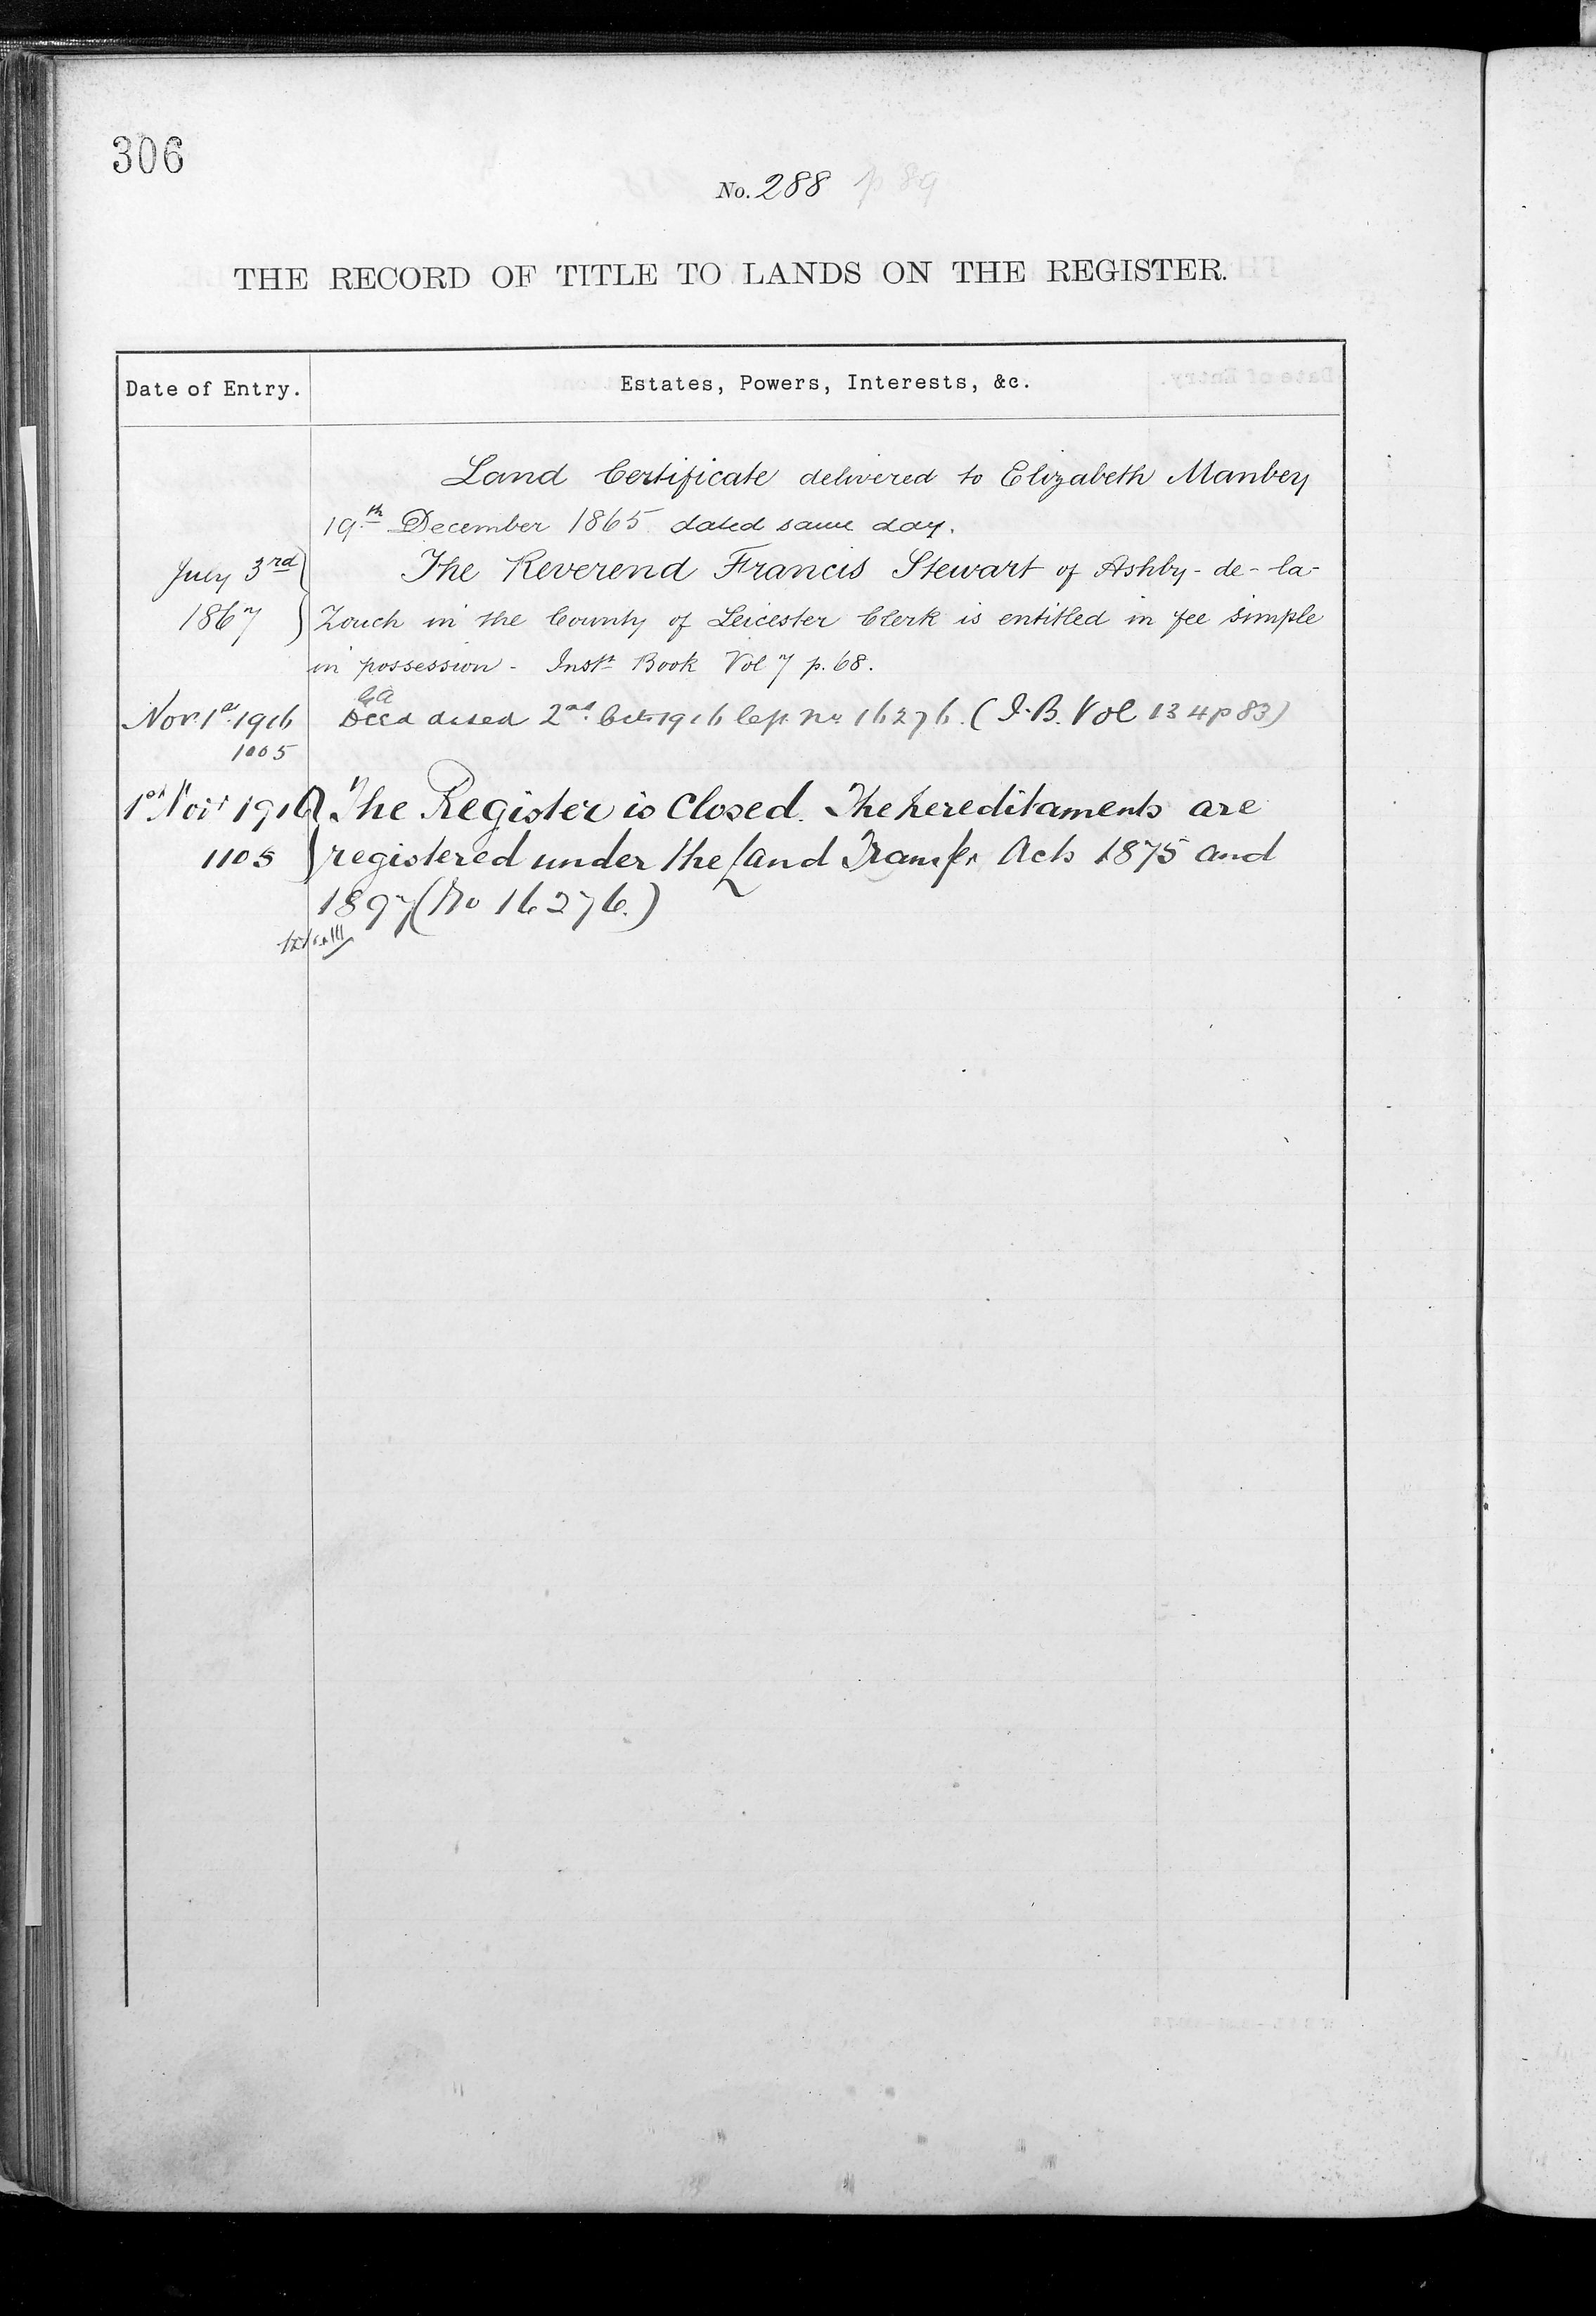 306
No. 288 p 89
THE RECORD OF TITLE TO LANDS ON THE REGISTER.
Date of Entry. Estates, Powers, Interests, &c.
Land Certificate delivered to Elizabeth Manbey
19th December 1865 dated same day.
July 3rd The Reverend Francis Stewart of Ashby-de-la-
1867 Zouch in the County of Leicester Clerk is entitled in fee simple
in possession - Inst Book Vol 7 p. 68.
Nov. 1st 1916 Deed dated 2nd Oct 1916 No 16276. (I.B. Vol 134 p 83)
1005
1st Nov 1916 The Register is Closed. The hereditaments are
1105 registered under the Land Transfer Acts 1875 and
1897 (No 16276.)